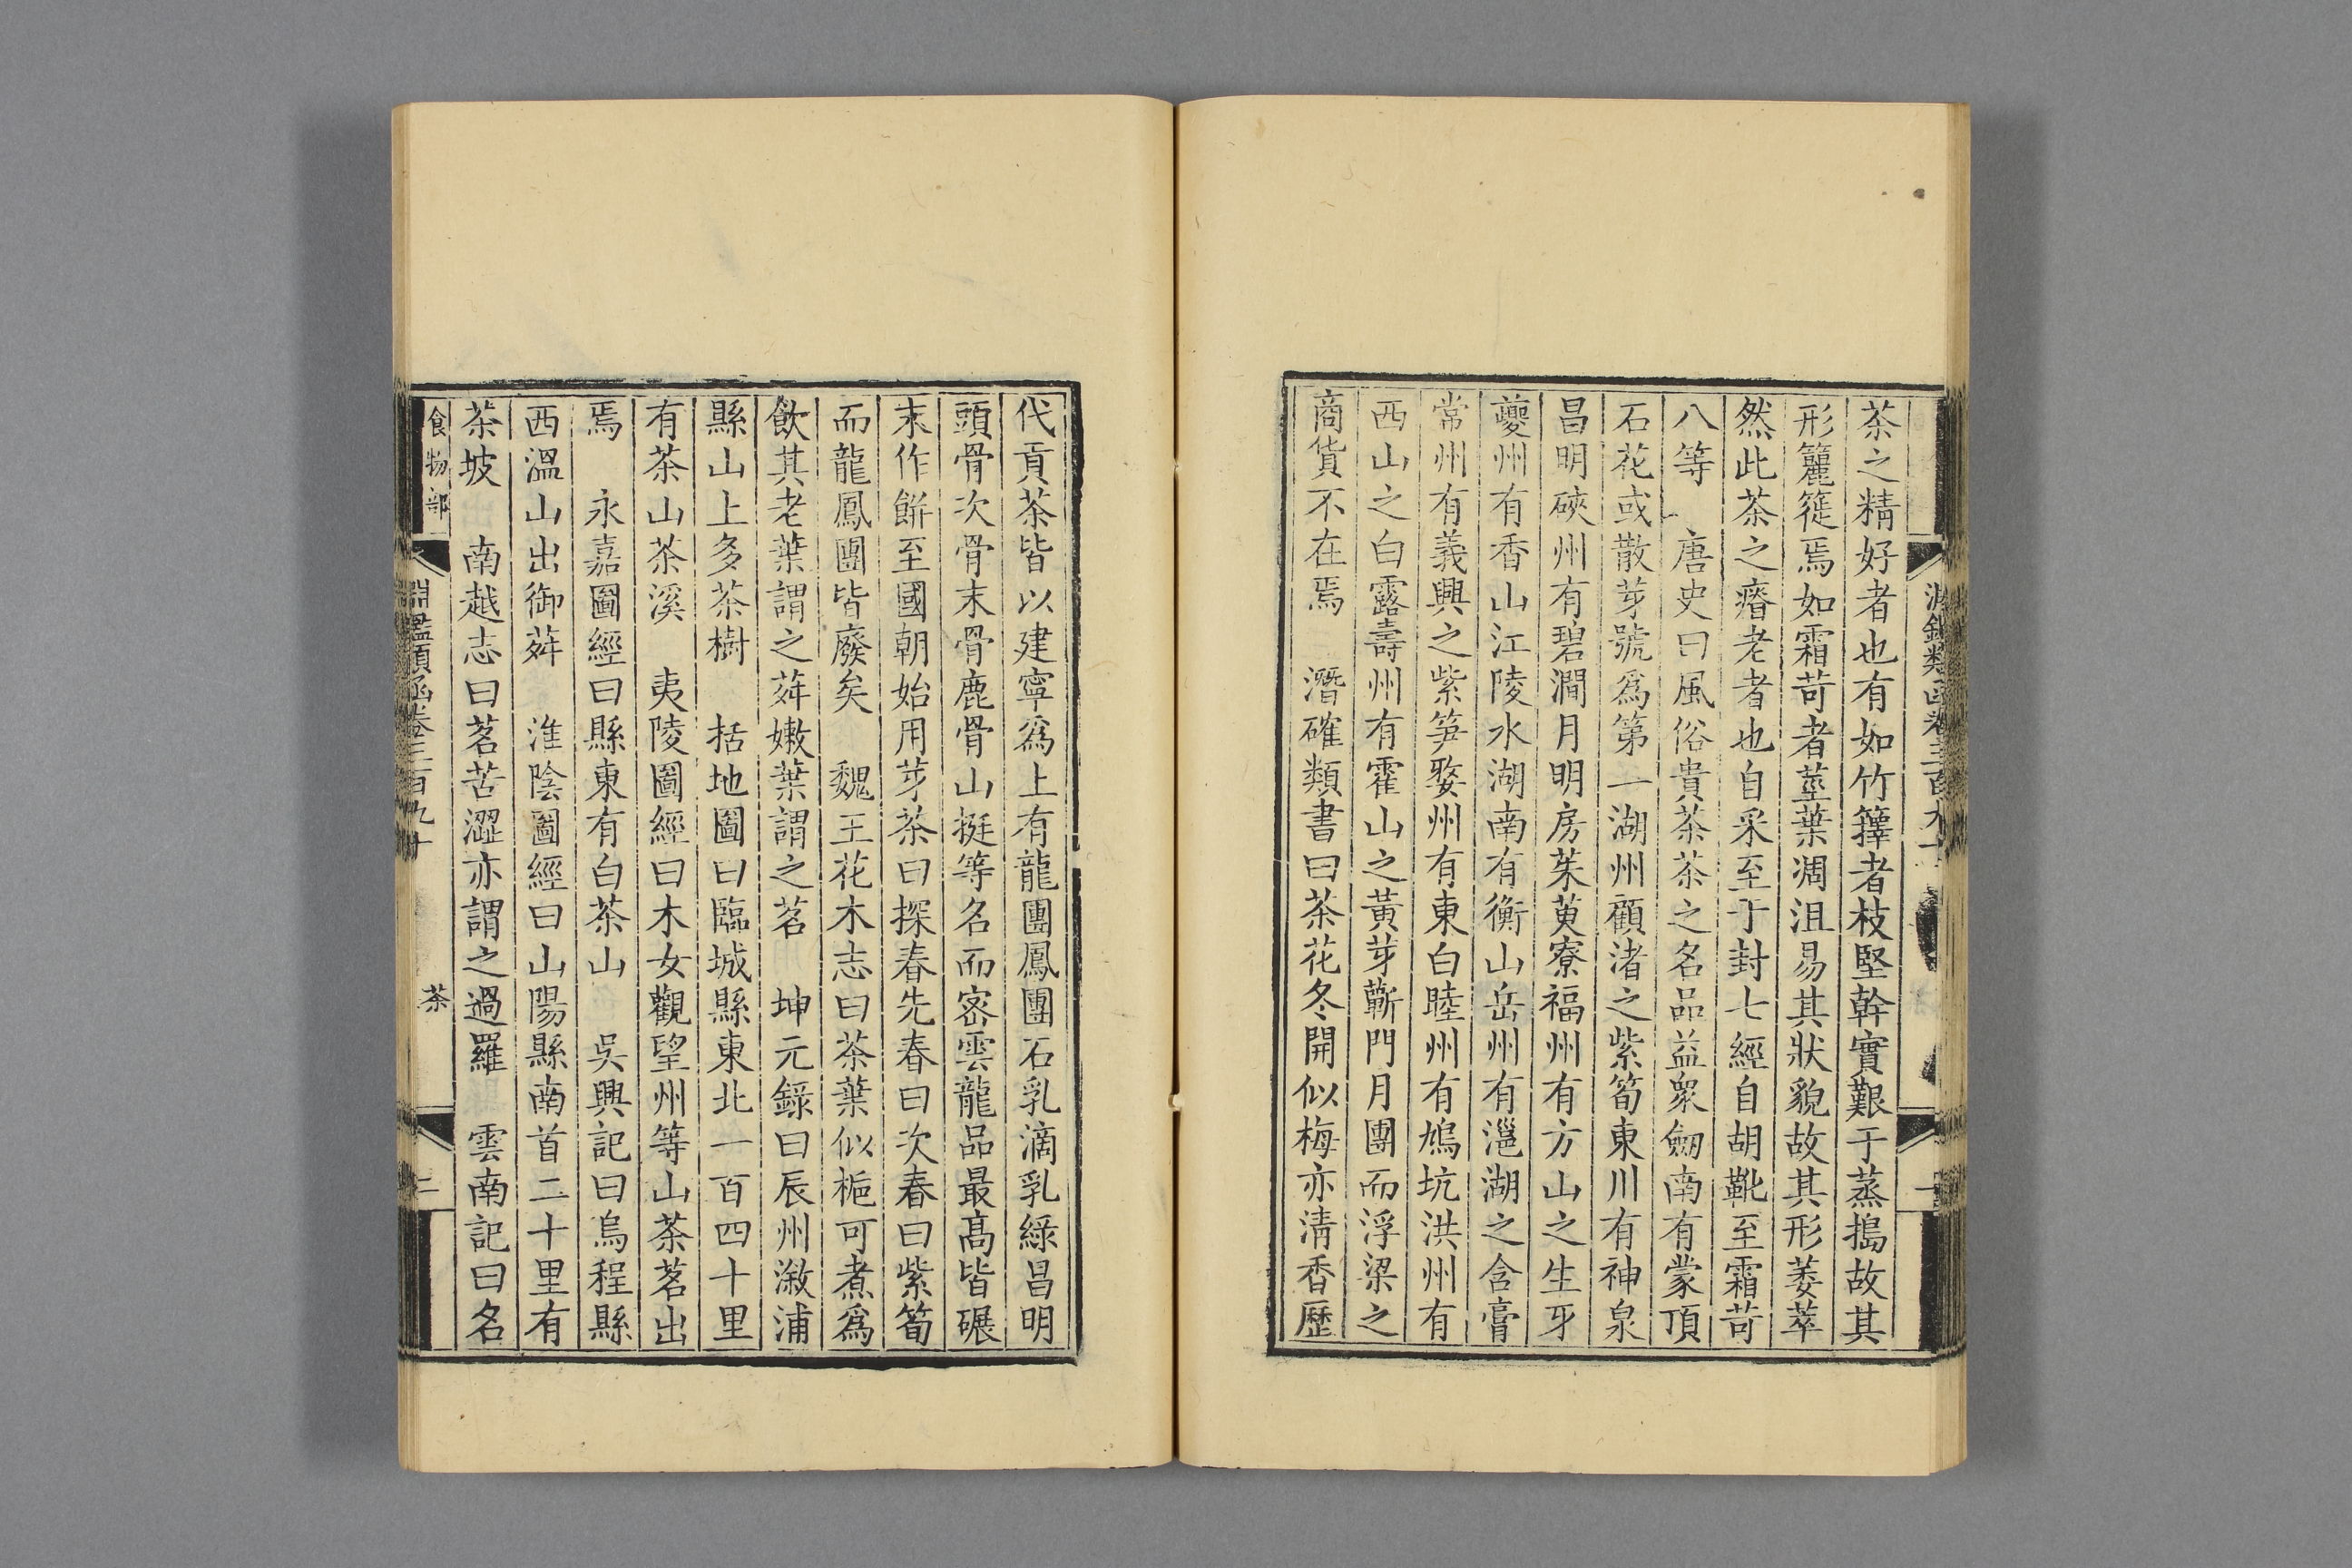 茶之精好者也有如竹籜者枝堅幹實艱于蒸搗故其
形簏簁焉如霜荷者莖葉凋沮易其狀貌故其形萎萃
然此茶之瘠老者也自采至于封七經自胡靴至霜荷
八等　唐史曰風俗貴茶茶之名品益衆劒南有蒙頂
石花或散芽號爲第一湖州顧渚之紫筍東川有神泉
昌明硤州有碧澗月明房茱萸寮福州有方山之生牙
夔州有香山江陵水湖南有衡山岳州有㴩湖之含膏
常州有義興之紫笋婺州有東白睦州有鳩坑洪州有
西山之白露壽州有霍山之黃芽蘄門月團而浮梁之
商貨不在焉　潛確類書曰茶花冬開似梅亦清香歷
代貢茶皆以建寧爲上有龍團鳳團石乳滴乳綠昌明
頭骨次骨末骨鹿骨山挺等名而宻雲龍品最高皆碾
末作餅至國朝始用芽茶曰探春先春曰次春曰紫筍
而龍鳳團皆廢矣　魏王花木志曰茶葉似梔可煮爲
飲其老葉謂之荈嫩葉謂之茗　坤元錄曰辰州漵浦
縣山上多茶樹　括地圖曰臨城縣東北一百四十里
有茶山茶溪　夷陵圖經曰木女觀望州等山茶茗出
焉　永嘉圖經曰縣東有白茶山　吳興記曰烏程縣
西溫山出御荈　淮陰圖經曰山陽縣南首二十里有
茶坡　南越志曰茗苦澀亦謂之過羅　雲南記曰名
食物部
淵鑑類函卷三百九十
茶
二